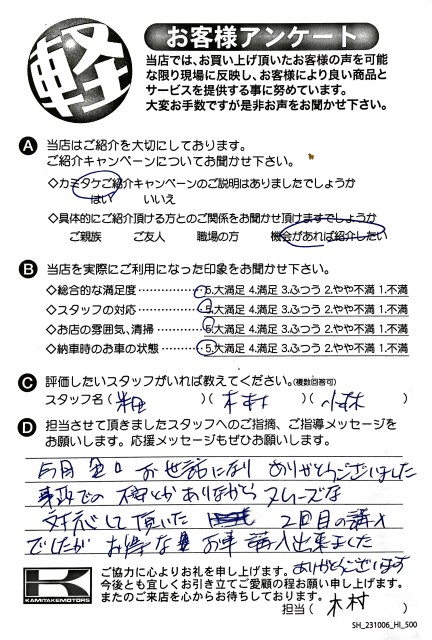 軽
お客様アンケート
当店では、お買い上げ頂いたお客様の声を可能
な限り現場に反映し、お客様により良い商品と
サービスを提供する事に努めています。
大変お手数ですが是非お声をお聞かせ下さい。
A 当店はご紹介を大切にしております。
ご紹介キャンペーンについてお聞かせ下さい。
◇カミタケご紹介キャンペーンのご説明はありましたでしょうか
はい いいえ
◇具体的にご紹介頂ける方とのご関係をお聞かせ頂けますでしょうか
ご親族 ご友人 職場の方 機会があれば紹介したい
B 当店を実際にご利用になった印象をお聞かせ下さい。
◇総合的な満足度 5.大満足 4.満足 3.ふつう 2.やや不満 1.不満
◇スタッフの対応 5.大満足 4.満足 3.ふつう 2.やや不満 1.不満
◇お店の雰囲気、清掃 5.大満足 4.満足 3.ふつう 2.やや不満 1.不満
◇納車時のお車の状態 5.大満足 4.満足 3.ふつう 2.やや不満 1.不満
C 評価したいスタッフがいれば教えてください。(複数回答可)
スタッフ名( )( 木村 )( 小林 )
D 担当させて頂きましたスタッフへのご指摘、ご指導メッセージを
お願いします。応援メッセージもぜひお願いします。
お世話になり ありがとうございました
ありながら スムーズな
対応して頂いた 2回目の購入
でしたが お得な お車 購入出来ました
ありがとうございます
ご協力に心よりお礼を申し上げます。
今後とも宜しくお引き立てご愛顧の程お願い申し上げます。
またのご来店を心からお待ちしております。
KAMITAKEMOTORS
担当( 木村 )
SH_231006_HI_500